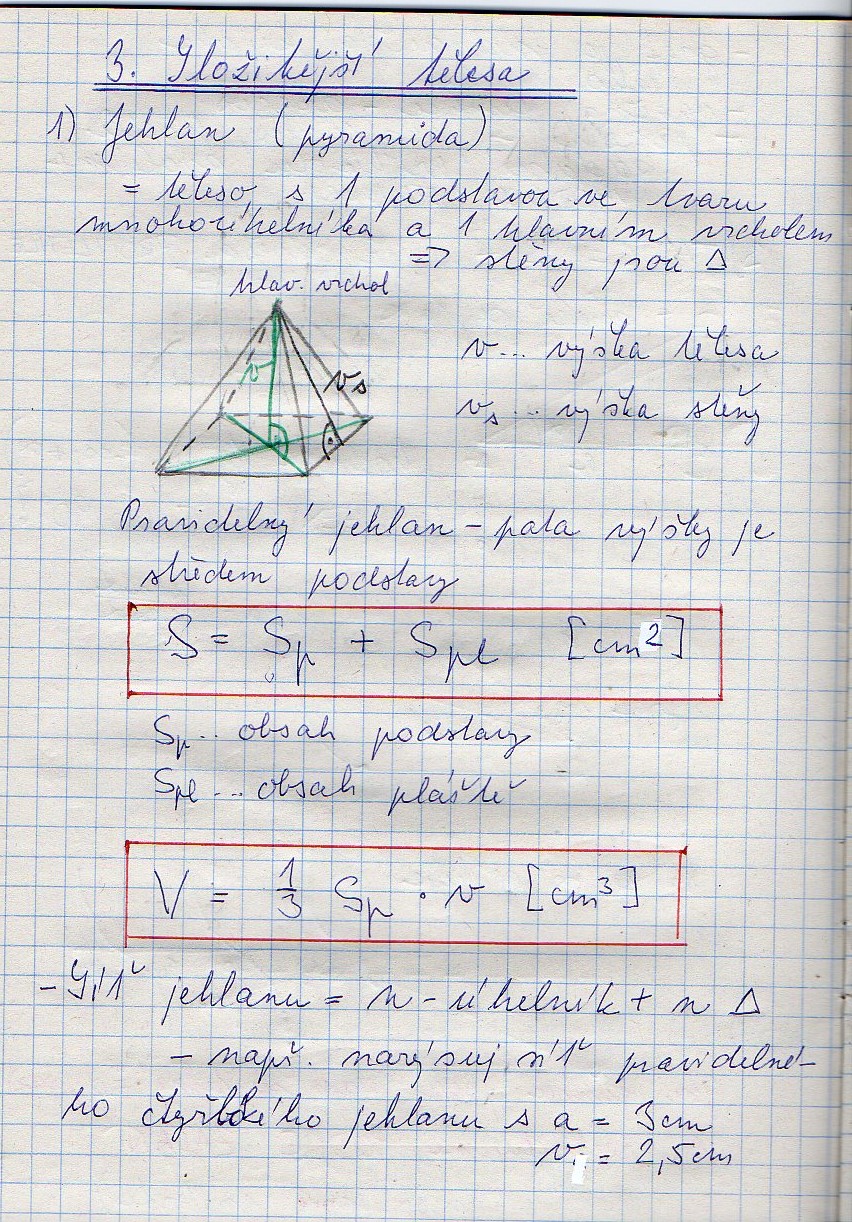 3. Složitější tělesa
1) Jehlan (pyramida)
= těleso s 1 podstavou ve tvaru
mnohoúhelníka a 1 hlavním vrcholem
=> stěny jsou Δ
hlav. vrchol
v
vs
v... výška tělesa
vs... výška stěny
Pravidelný jehlan - pata výšky je
středem podstavy
S = Sp + Spl [cm²]
Sp.. obsah podstavy
Spl... obsah pláště
V = 1/3 Sp · v [cm³]
- Síť jehlanu = n-úhelník + n Δ
- např. narýsuj síť pravidelné-
ho čtyřbokého jehlanu s a = 3cm
v = 2,5cm